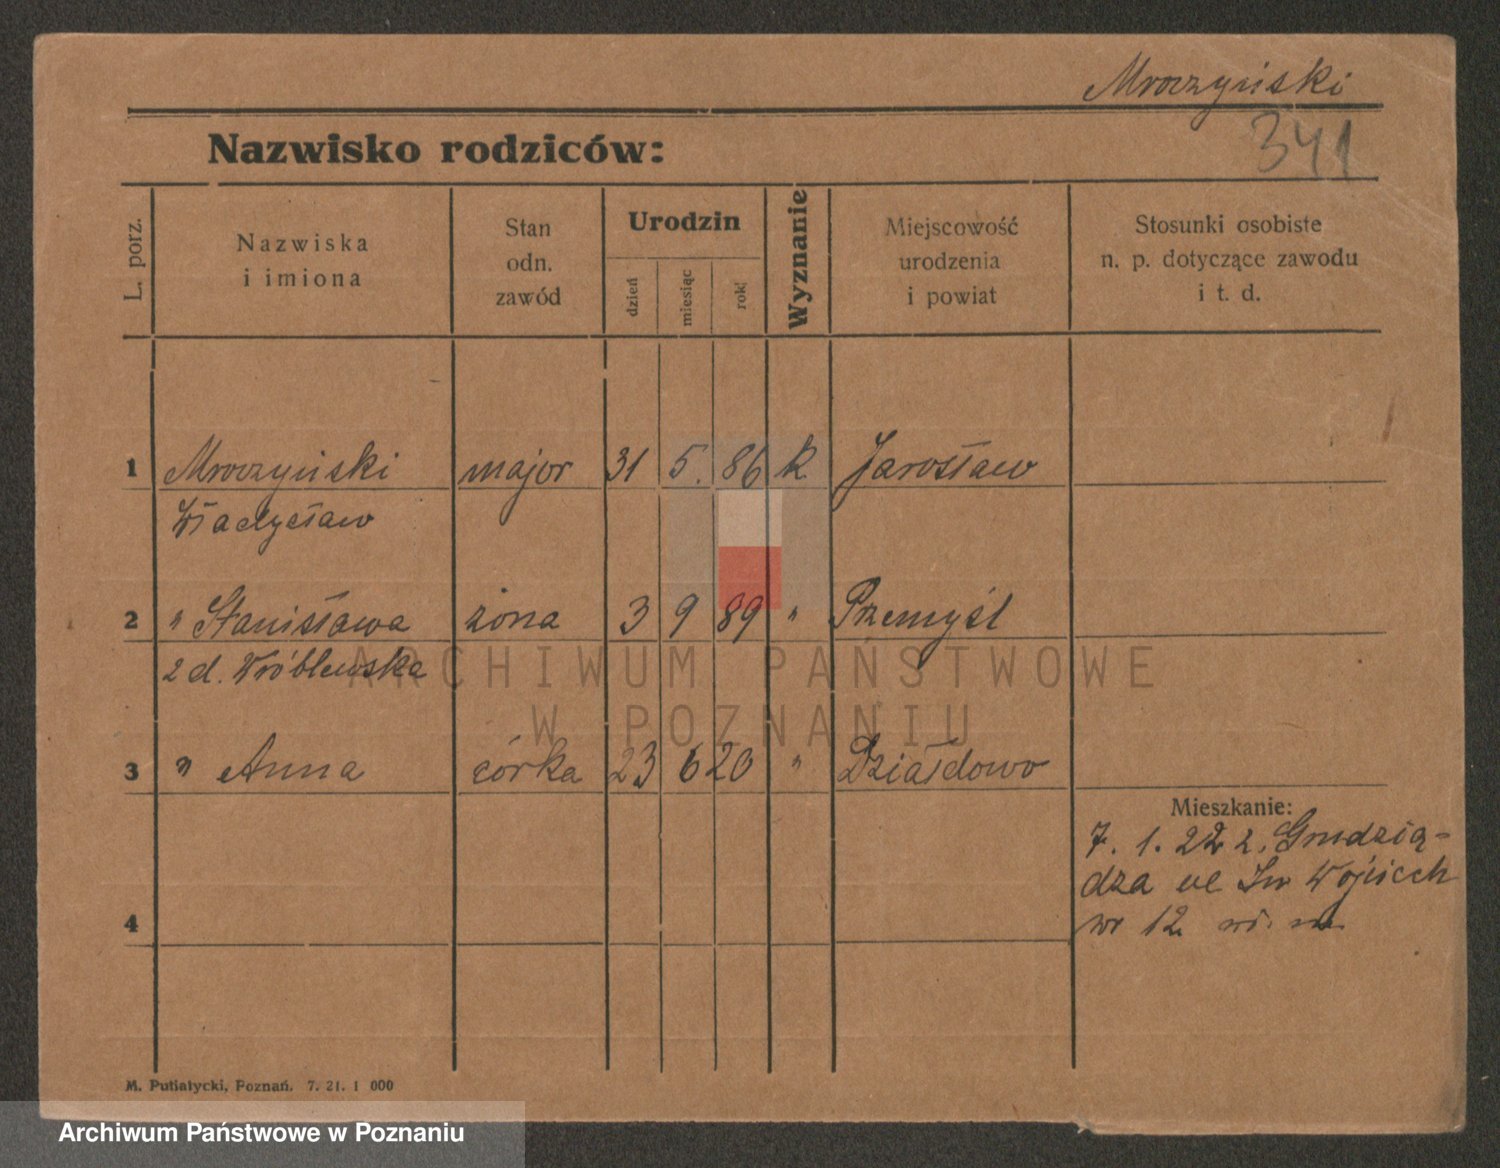 Mroczyński
341
Nazwisko rodziców:
L. porz.
Nazwiska
i imiona
Stan
odn.
zawód
Urodzin
dzień
miesiąc
rok
Wyznanie
Miejscowość
urodzenia
i powiat
Stosunki osobiste
n. p. dotyczące zawodu
i t. d.
1 Mroczyński major 31 5. 86 k. Jarosław
Władysław
2 " Stanisława żona 3 9 89 " Przemyśl
z d. Wróblewska
3 " Anna córka 23 6 20 " Działdowo
Mieszkanie:
7. 1. 22 z. Grudzią-
dza ul Św Wojciech
nr 12
4
M. Putiatycki, Poznań. 7. 21. 1 000
ARCHIWUM PAŃSTWOWE
W POZNANIU
Archiwum Państwowe w Poznaniu